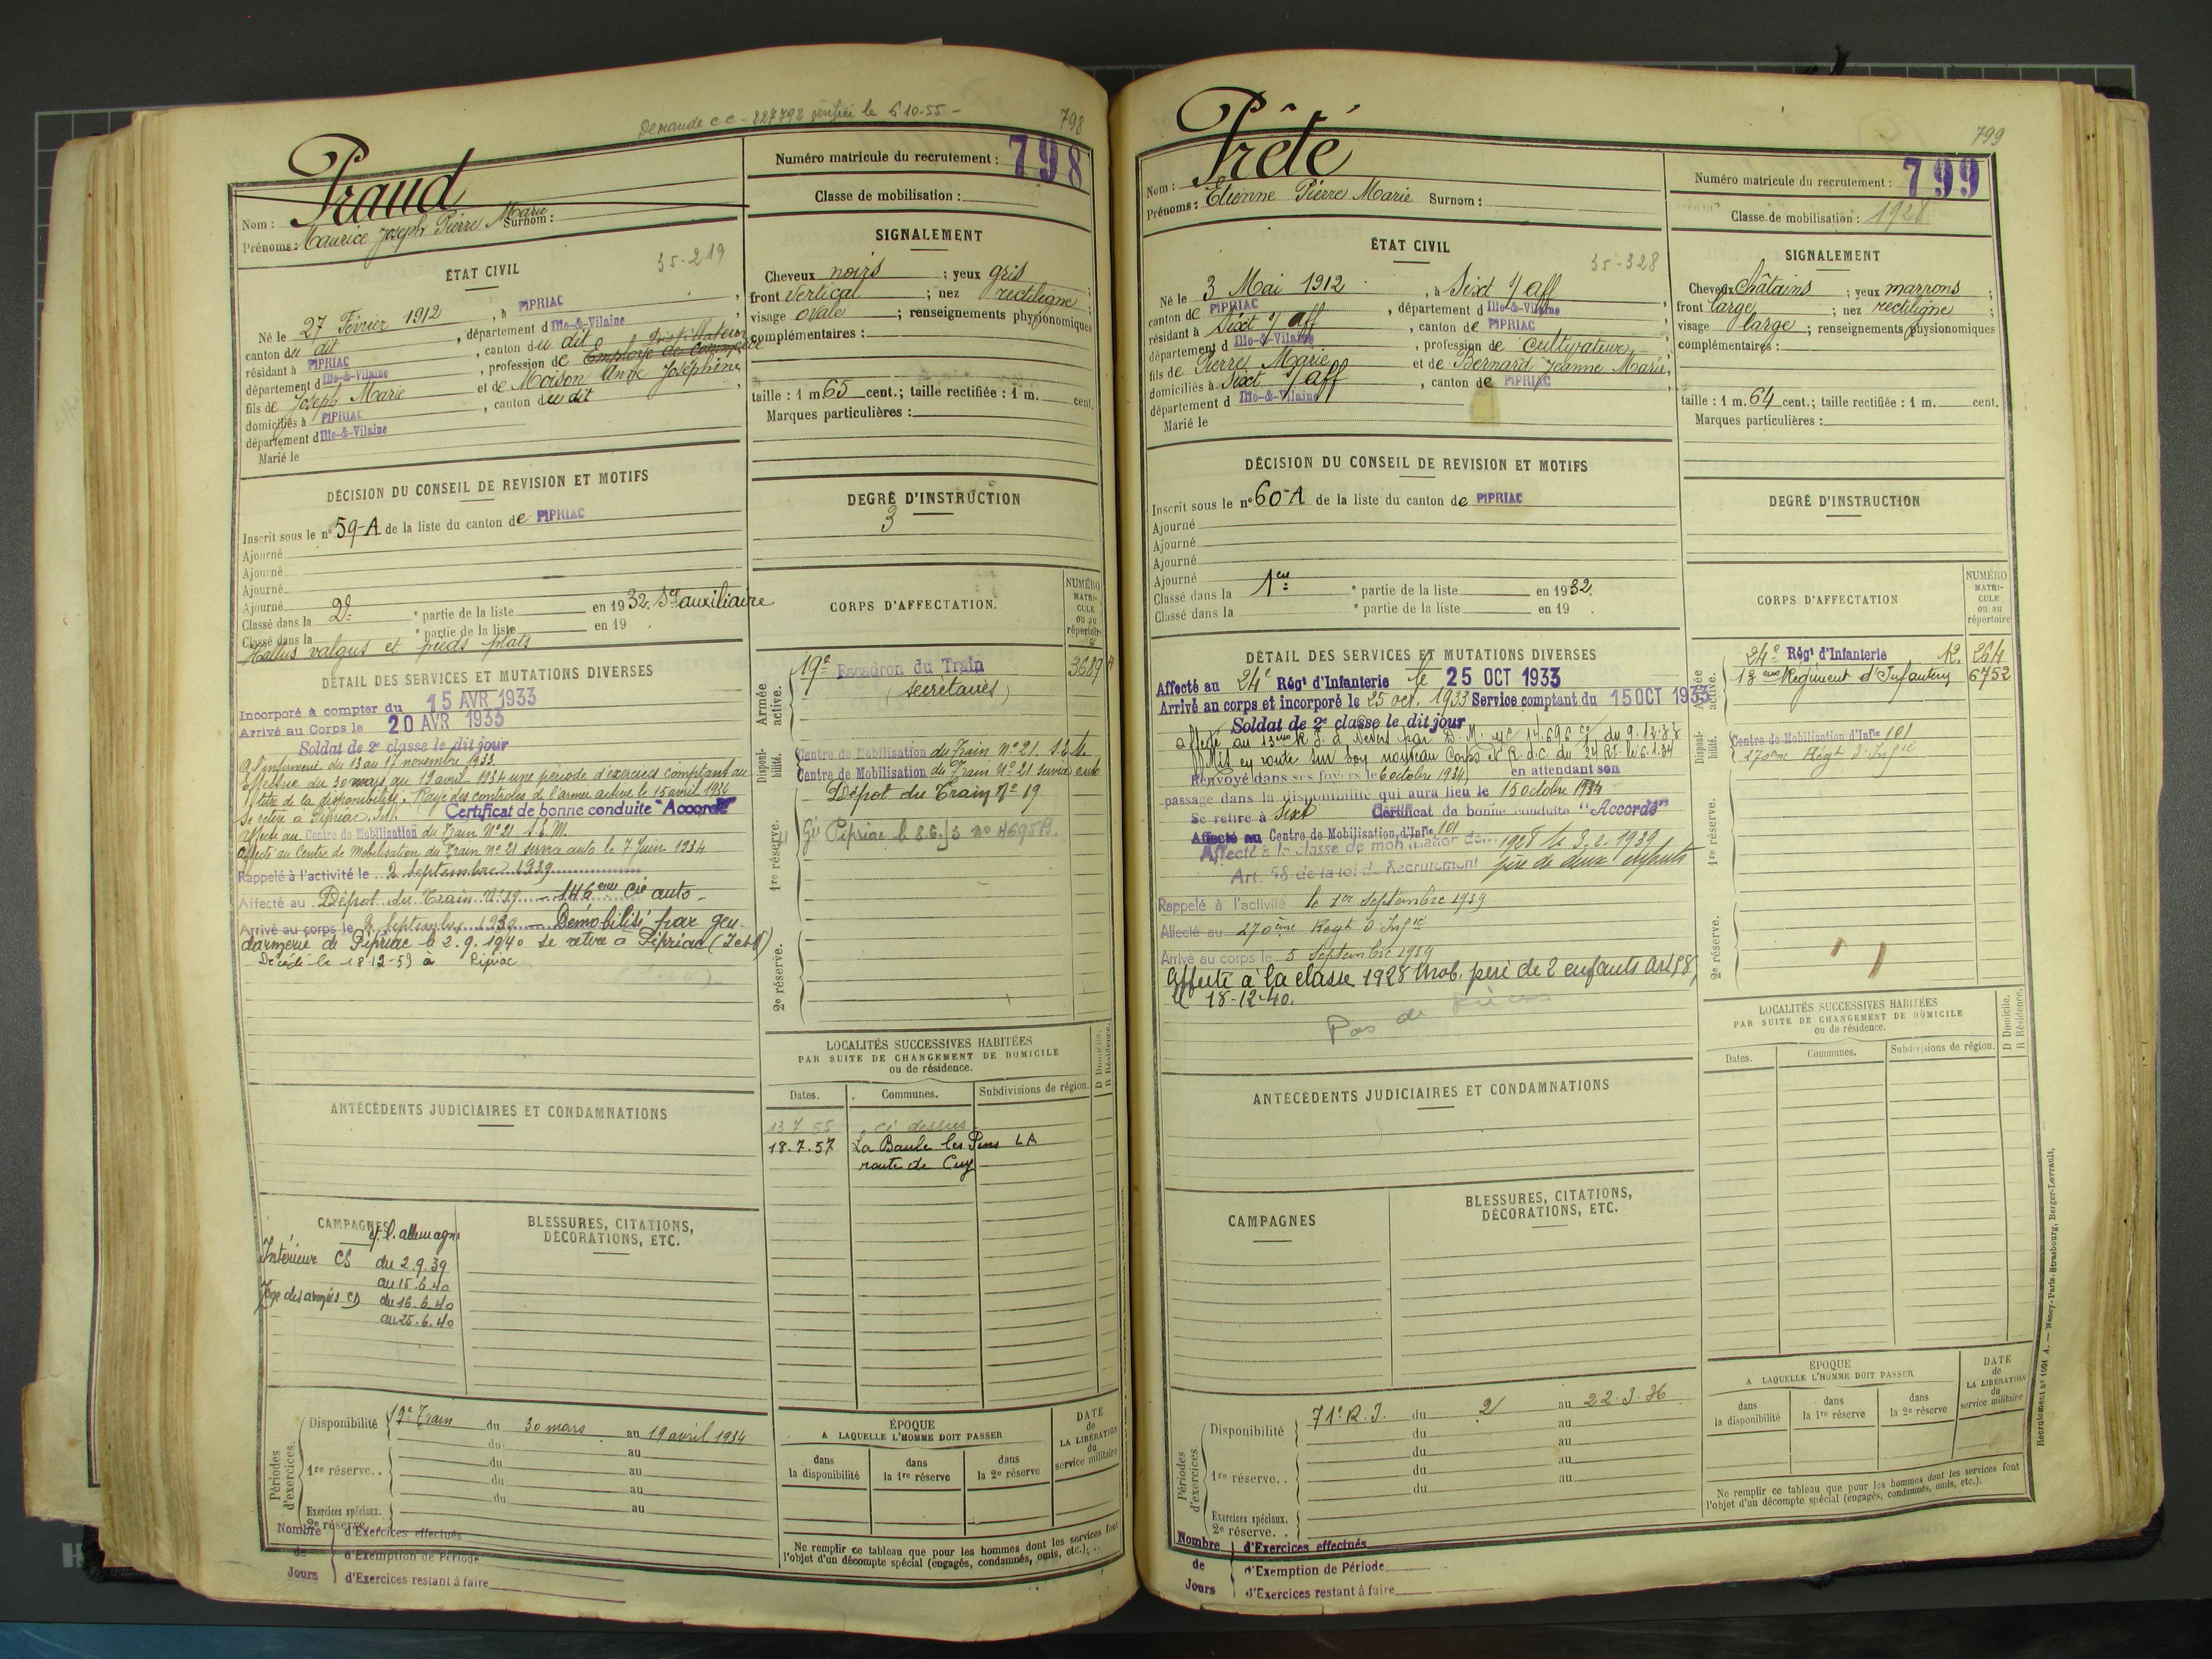 Demande C C - 227792 vérifiée le 5 10-55 -
798
Praud
Nom :
Prénoms : Maurice Joseph Pierre Marie Surnom :
Numéro matricule du recrutement : 798
Classe de mobilisation :
ÉTAT CIVIL
35-219
Né le 27 Février 1912, à PIPRIAC,
canton du dit, département d Ille-&-Vilaine
résidant à PIPRIAC, canton du dit
département d Ille-&-Vilaine, profession de Employé de Commerce Distillateur
fils de Joseph Marie et de Moison Anne Joséphine,
domiciliés à PIPRIAC, canton du dit
département d Ille-&-Vilaine
Marié le
SIGNALEMENT
Cheveux noirs ; yeux gris ;
front Vertical ; nez rectiligne ;
visage ovale ; renseignements physionomiques
complémentaires :
taille : 1 m. 65 cent.; taille rectifiée : 1 m. cent.
Marques particulières :
DÉCISION DU CONSEIL DE REVISION ET MOTIFS
Inscrit sous le n° 59-A de la liste du canton de PIPRIAC
Ajourné
Ajourné
Ajourné
Ajourné
Classé dans la 2e partie de la liste en 1932. Sce auxiliaire
Classé dans la e partie de la liste en 19 .
Hallus valgus et pieds plats
DEGRÉ D'INSTRUCTION
3
DÉTAIL DES SERVICES ET MUTATIONS DIVERSES
Incorporé à compter du 15 AVR 1933
Arrivé au Corps le 20 AVR 1933
Soldat de 2e classe le dit jour
A l'infirmerie du 13 au 17 novembre 1933.
Effectue du 30 mars au 19 avril 1934 une période d'exercices comptant au
titre de la disponibilité. Rayé des contrôles de l'armée active le 15 avril 1934
Se retire à Pipriac. Certificat de bonne conduite "Accordé"
Affecté au Centre de Mobilisation du Train N° 21 S.E.M.
Affecté au Centre de Mobilisation du Train n° 21 service auto le 7 Juin 1934
Rappelé à l'activité le 2 Septembre 1939
Affecté au Dépôt du Train N° 19 - 146ème Cie auto -
Arrivé au corps le 2 Septembre 1939 - Démobilisé par gen-
darmerie de Pipriac le 2.9.1940 se retire à Pipriac (I et V)
Décédé le 18-12-59 à Pipriac
CORPS D'AFFECTATION.
NUMÉRO MATRI-CULE ou au répertoire
Armée active.
19e Escadron du Train 3689 A
(secrétaires)
Disponi-bilité.
Centre de Mobilisation du Train N° 21. S.E.M.
Centre de Mobilisation du Train N° 21 service auto
1re réserve.
Dépôt du Train N° 19
Gie Pipriac
2e réserve.
ANTÉCÉDENTS JUDICIAIRES ET CONDAMNATIONS
LOCALITÉS SUCCESSIVES HABITÉES
PAR SUITE DE CHANGEMENT DE DOMICILE
ou de résidence.
D Domicile. R Résidence.
Dates. Communes. Subdivisions de région.
13 7 55 ci dessus
18.7.57 La Baule les Pins LA
route de Cuy
CAMPAGNES
c/ l'allemagne
Intérieur CS du 2.9.39
au 15.6.40
Zone des armées CD du 16.6.40
au 25.6.40
BLESSURES, CITATIONS,
DÉCORATIONS, ETC.
Périodes d'exercices.
Disponibilité 19e Train du 30 mars au 19 avril 1934
du au
1re réserve. . du au
du au
du au
Exercices spéciaux. au
2e réserve. .
Nombre de Jours
d'Exercices effectués
d'Exemption de Période
d'Exercices restant à faire
ÉPOQUE
A LAQUELLE L'HOMME DOIT PASSER
dans la disponibilité
dans la 1re réserve
dans la 2e réserve
DATE de LA LIBÉRATION du service militaire
Ne remplir ce tableau que pour les hommes dont les services font
l'objet d'un décompte spécial (engagés, condamnés, omis, etc.).
799
Prêté
Nom :
Prénoms : Etienne Pierre Marie Surnom :
Numéro matricule du recrutement : 799
Classe de mobilisation : 1928
ÉTAT CIVIL
35-328
Né le 3 Mai 1912, à Sixt s/ aff
canton de PIPRIAC, département d Ille-&-Vilaine,
résidant à Sixt s/ aff, canton de PIPRIAC
département d Ille-&-Vilaine, profession de cultivateur
fils de Pierre Marie et de Bernard Jeanne Marie,
domiciliés à Sixt s/ aff, canton de PIPRIAC
département d Ille-&-Vilaine
Marié le
SIGNALEMENT
Cheveux Châtains ; yeux marrons ;
front large ; nez rectiligne ;
visage large ; renseignements physionomiques
complémentaires :
taille : 1 m. 64 cent.; taille rectifiée : 1 m. cent.
Marques particulières :
DÉCISION DU CONSEIL DE REVISION ET MOTIFS
Inscrit sous le n° 60-A de la liste du canton de PIPRIAC
Ajourné
Ajourné
Ajourné
Ajourné
Classé dans la 1ère e partie de la liste en 1932.
Classé dans la e partie de la liste en 19 .
DEGRÉ D'INSTRUCTION
DÉTAIL DES SERVICES ET MUTATIONS DIVERSES
Affecté au 24e Régt d'Infanterie le 25 OCT 1933
Arrivé au corps et incorporé le 25 oct. 1933 Service comptant du 15 OCT 1933
Soldat de 2e classe le dit jour
affecté au 13ème R.I. à Nevers par D.M. n° 14.696 du 9.12.33
Mis en route sur son nouveau Corps et R.d.C. du 24 R.I. le 6.1.34
Renvoyé dans ses foyers le 6 octobre 1934 en attendant son
passage dans la disponibilité qui aura lieu le 15 octobre 1934
Se retire à Sixt Certificat de bonne conduite "Accordé"
Affecté au Centre de Mobilisation d'Infie 101
Affecté à la classe de mobilisation de 1928 le 3.2.1939
Art. 58 de la loi de Recrutement père de deux enfants
Rappelé à l'activité le 1er septembre 1939
Affecté au 270ème Regt d'Infie
Arrivé au corps le 5 Septembre 1939
Affecté à la classe 1928 Mob. père de 2 enfants Art 58
le 18-12-40.
Pas de pièces
CORPS D'AFFECTATION
NUMÉRO MATRI-CULE ou au répertoire
Armée active.
24e Régt d'Infanterie R2. 264
13ème Régiment d'Infanterie 6752
Disponi-bilité.
Centre de Mobilisation d'Infie 101
270ème Regt d'Infie
1re réserve.
2e réserve.
ANTÉCÉDENTS JUDICIAIRES ET CONDAMNATIONS
LOCALITÉS SUCCESSIVES HABITÉES
PAR SUITE DE CHANGEMENT DE DOMICILE
ou de résidence.
D Domicile. R Résidence.
Dates. Communes. Subdivisions de région.
CAMPAGNES
BLESSURES, CITATIONS,
DÉCORATIONS, ETC.
Périodes d'exercices.
Disponibilité 71e R.I. du 2 au 22.3.36
du au
1re réserve. . du au
du au
du au
Exercices spéciaux.
2e réserve. .
Nombre de Jours
d'Exercices effectués
d'Exemption de Période
d'Exercices restant à faire
ÉPOQUE
A LAQUELLE L'HOMME DOIT PASSER
dans la disponibilité
dans la 1re réserve
dans la 2e réserve
DATE de LA LIBÉRATION du service militaire
Ne remplir ce tableau que pour les hommes dont les services font
l'objet d'un décompte spécial (engagés, condamnés, omis, etc.).
Recrutement n° 1001 A. — Nancy-Paris-Strasbourg, Berger-Levrault.